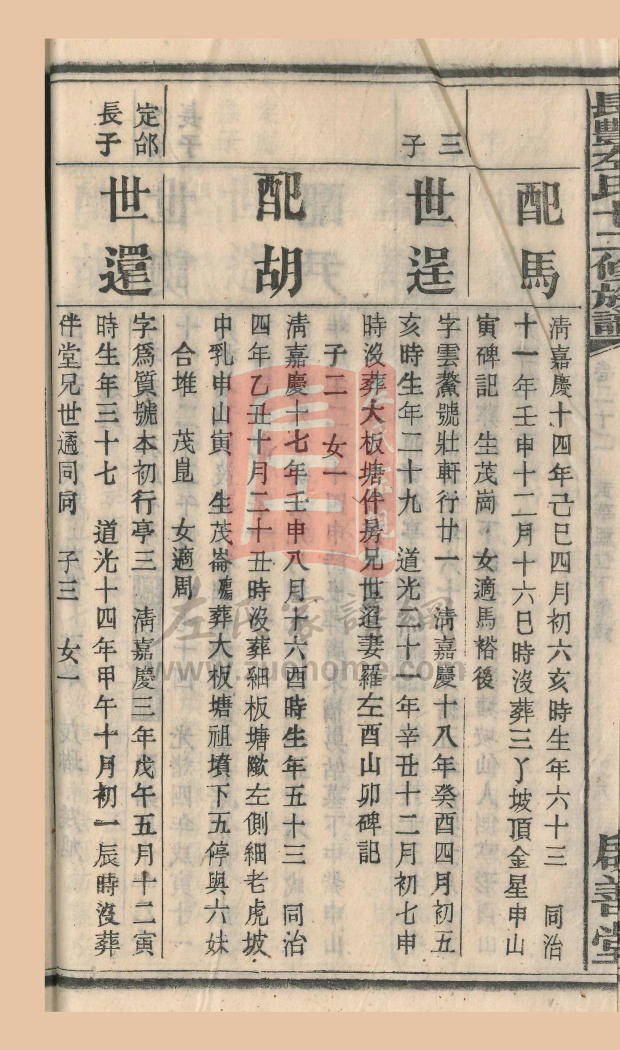 長豐左氏十二修族譜
卷二十二
啟善堂
配馬
淸嘉慶十四年己巳四月初六亥時生年六十三 同治
十一年壬申十二月十六巳時沒葬三了坡頂金星申山
寅碑記 生茂崗 女適馬裕後
三子
世逞
字雲鰲號壯軒行廿一 淸嘉慶十八年癸酉四月初五
亥時生年二十九 道光二十一年辛丑十二月初七申
時沒葬大板塘伴房兄世道妻羅左酉山卯碑記
子二 女一
配胡
淸嘉慶十七年壬申八月十六酉時生年五十三 同治
四年乙丑十月二十丑時沒葬細板塘左側細老虎坡
中乳申山寅 生茂崙葬大板塘祖墳下五停與六妹
合堆 茂崑 女適周
定郃長子
世還
字爲質號本初行亭三 淸嘉慶三年戊午五月十二寅
時生年三十七 道光十四年甲午十月初一辰時沒葬
伴堂兄世適同向 子三 女一
左氏家譜網
www.zuohome.com